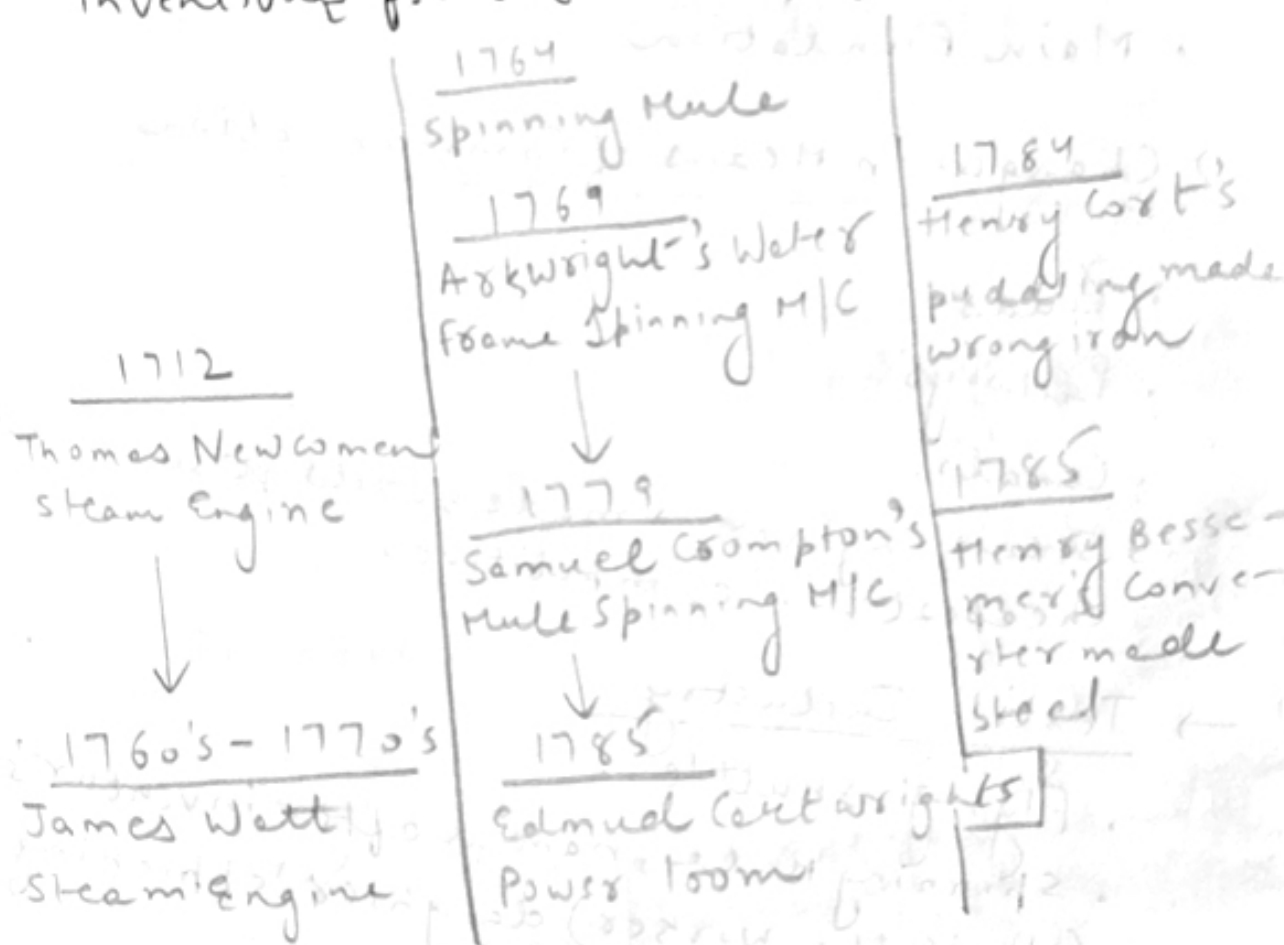 1712
Thomas Newcomen
Steam Engine
1760's - 1770's
James Watt
Steam Engine
1764
Spinning Mule
1769
Arkwright's Water
Frame Spinning M/C
1779
Samuel Crompton's
Mule Spinning M/C
1785
Edmud Cartwrights
Power loom
1784
Henry Cort's
made
wrong iron
1785
Henry Besse-
mer's Conve-
rter made
Steel